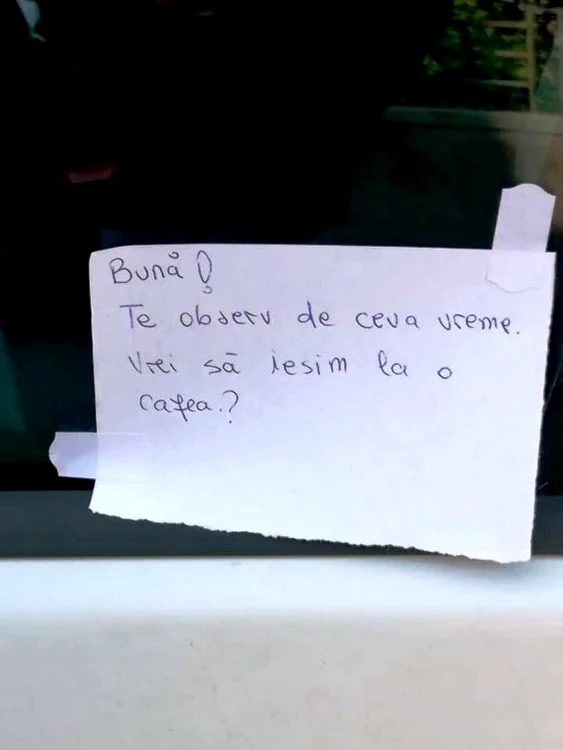 Bună!
Te observ de ceva vreme.
Vrei să iesim la o
cafea.?